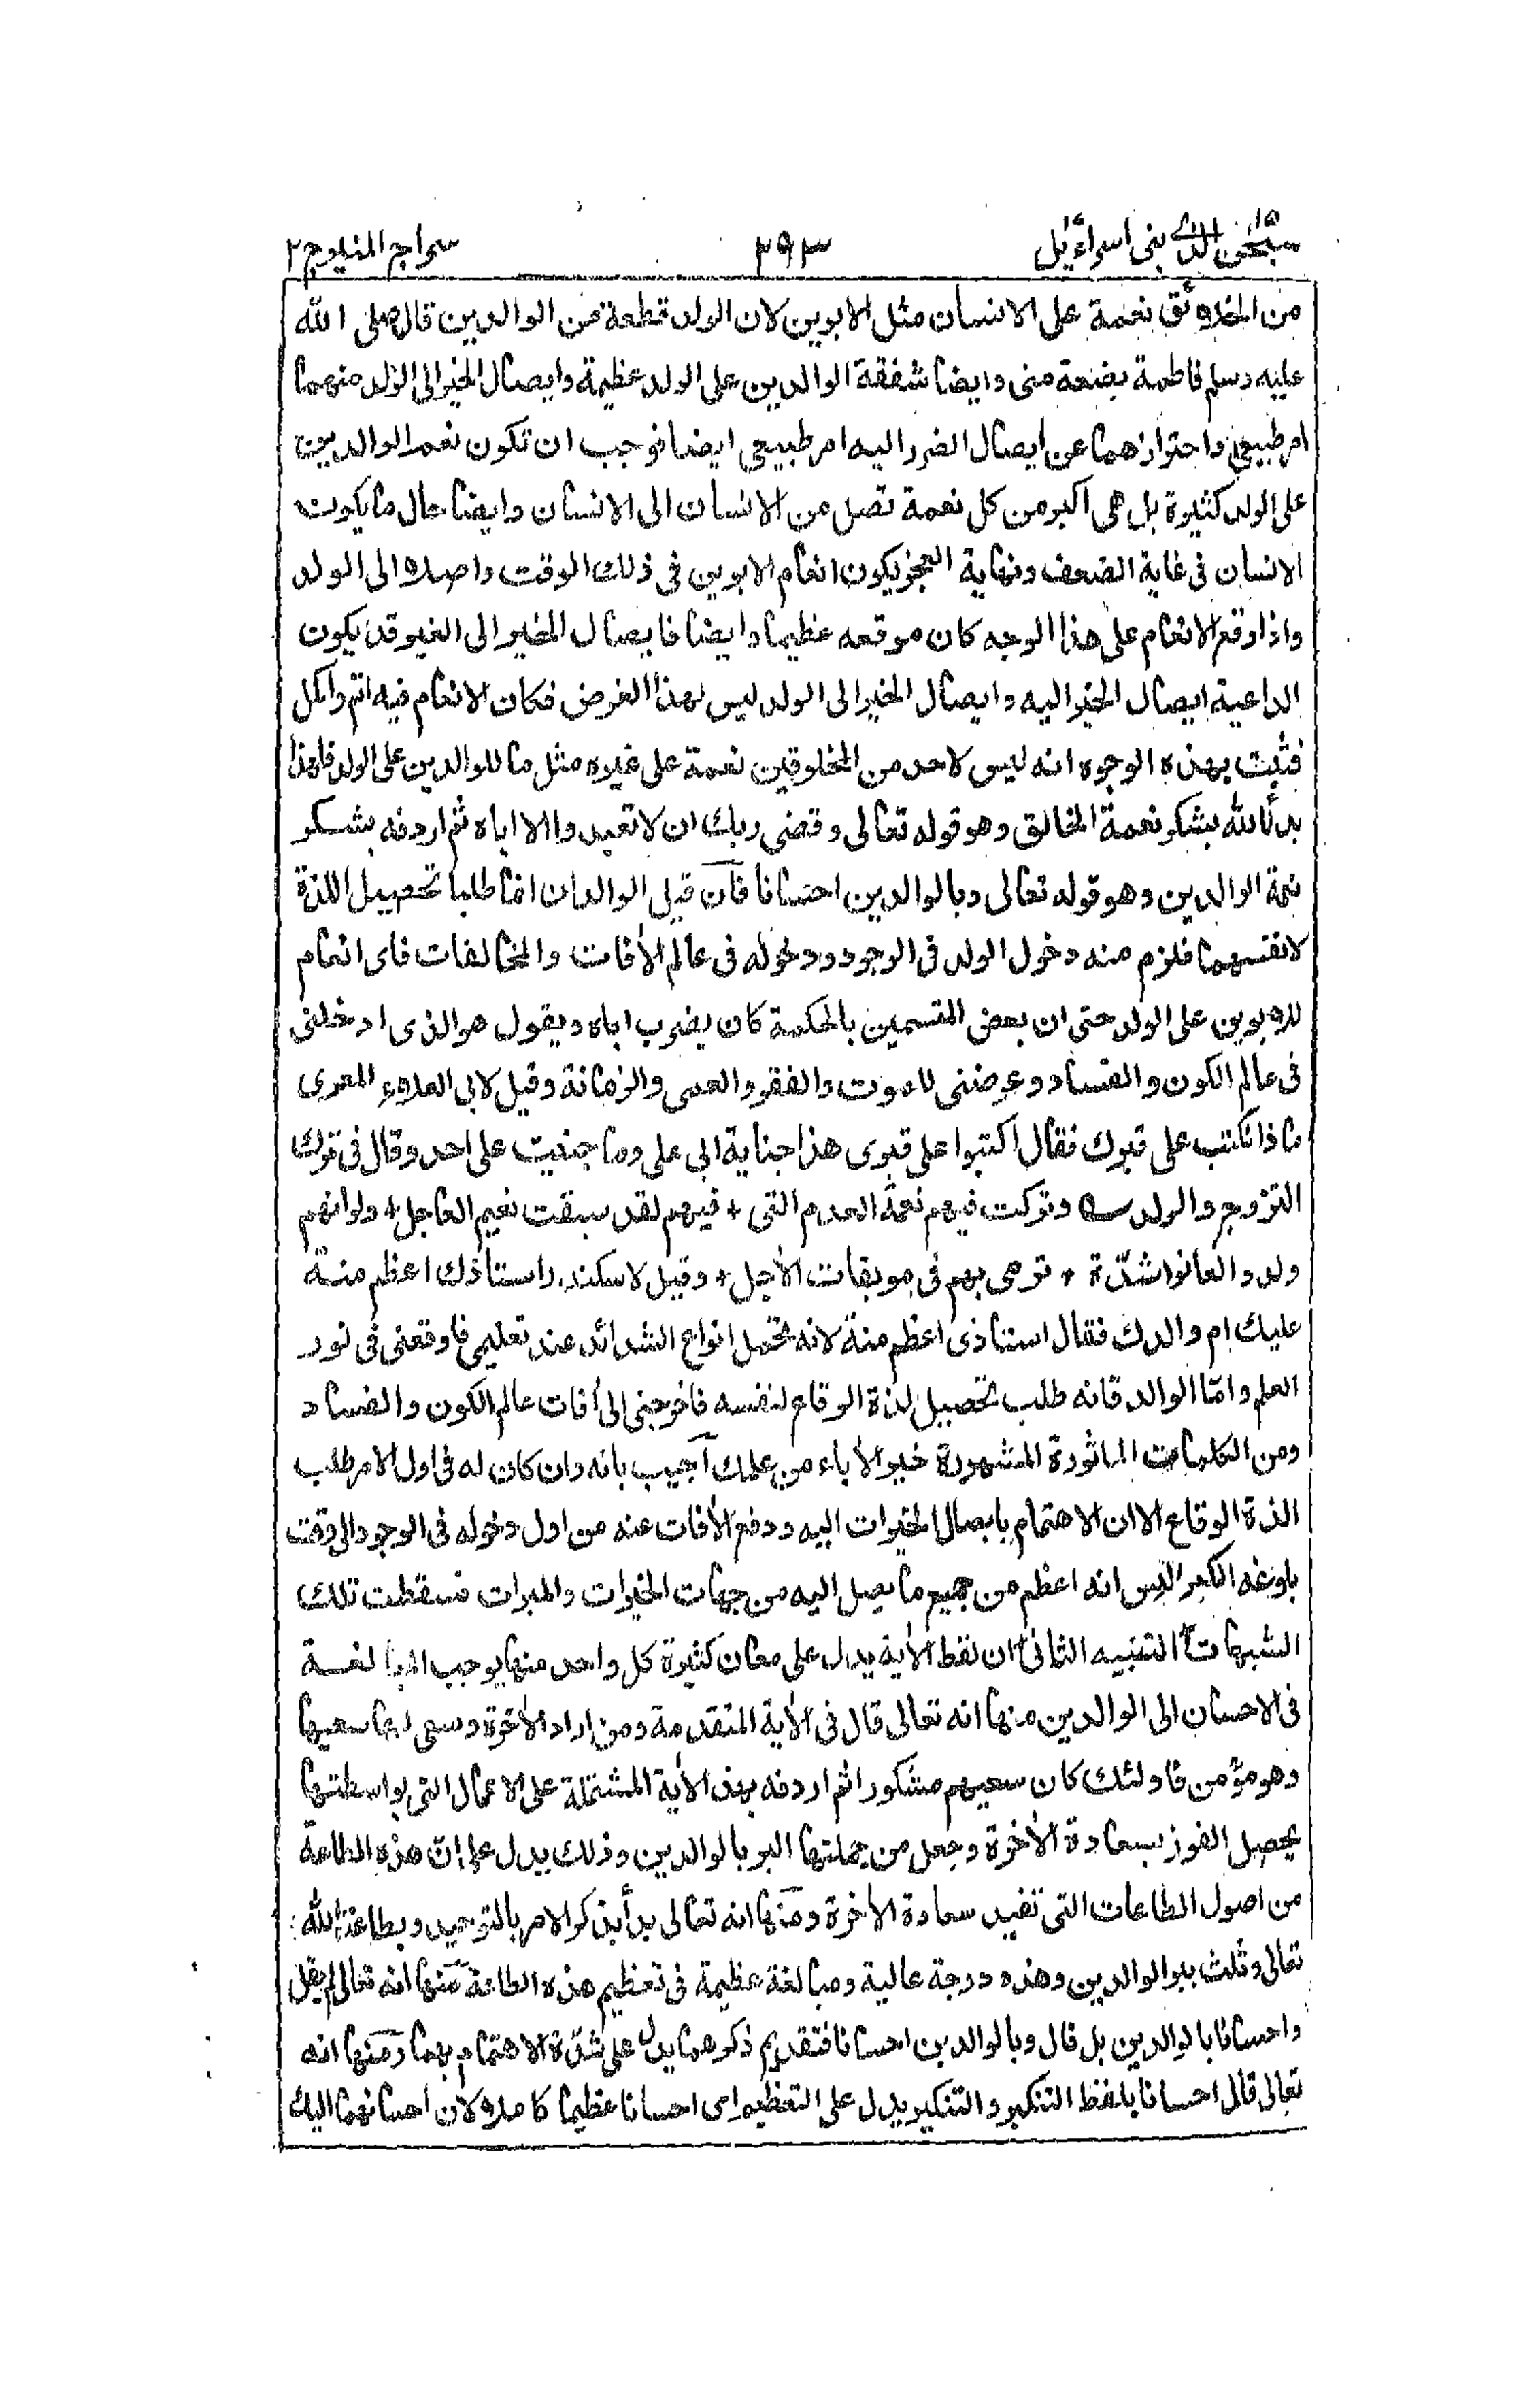 سبحن الذى ١٥ بنى اسراءيل ٢٩٣ سراج المنير ج ٢
من الخلائق نعمة على الانسان مثل الابوين لان الولد قطعة من الوالدين قال صلى الله
عليه وسلم فاطمة بضعة منى وايضا شفقة الوالدين على الولد عظيمة وايصال الخير الى الولد منهما
امر طبيعى واحترازهما عن ايصال الضرر اليه امر طبيعى ايضا فوجب ان تكون نعم الوالدين
على الولد كثيرة بل هى اكبر من كل نعمة تصل من الانسان الى الانسان وايضا حال ما يكون
الانسان فى غاية الضعف ونهاية العجز يكون انعام الابوين فى ذلك الوقت واصلا الى الولد
واذا وقع الانعام على هذا الوجه كان موقعه عظيما وايضا فايصال الخير الى الغير وقد يكون
الداعية ايصال الخير اليه وايصال الخير الى الولد ليس لهذا الغرض فكان الانعام فيه اتم واكمل
فثبت بهذه الوجوه انه ليس لاحد من المخلوقين نعمة على غيره مثل ما للوالدين على الولد فلهذا
بدأ الله بشكر نعمة الخالق وهو قوله تعالى وقضى ربك ان لا تعبدوا الا اياه ثم اردفه بشكر
نعمة الوالدين وهو قوله تعالى وبالوالدين احسانا فان قيل الوالدان انما طلبا تحصيل اللذة
لانفسهما فلزم منه دخول الولد فى الوجود ودخوله فى عالم الأفات والمخالفات فاى انعام
للابوين على الولد حتى ان بعض المتسمين بالحكمة كان يضرب اباه ويقول هو الذى ادخلنى
فى عالم الكون والفساد وعرضنى للموت والفقر والعمى والزمانة وقيل لابى العلاء المعرى
ما ذا نكتب على قبرك فقال اكتبوا على قبرى هذا جناية ابى على وما جنيت على احد وقال فى ترك
التزوج والولد ؎ وتركت فيهم نعمة العدم التى + فيهم لقد سبقت نعيم العاجل + ولو انهم
ولدوا لعانوا شدّة + ترمى بهم فى موبقات الأجل + وقيل لاسكندر استاذك اعظم منة
عليك ام والدك فقال استاذى اعظم منة لانه تحمل انواع الشدائد عند تعليمى فاوقعنى فى نور
العلم وامّا الوالد فانه طلب تحصيل لذة الوقاع لنفسه فاخرجنى الى أفات عالم الكون والفساد
ومن الكلمات الماثورة المشهورة خير الأباء من علمك أجيب بانه وان كان له فى اول الامر طلب
الذة الوقاع الا ان الاهتمام بايصال الخيرات اليه ودفع الأفات عنه من اول دخوله فى الوجود الى وقت
بلوغه الكبر اليس انه اعظم من جميع ما يصل اليه من جهات الخيرات والمبرات فسقطت تلك
الشبهات التنبيه الثانى ان لفظ الأية يدل على معان كثيرة كل واحد منها يوجب المبالغة
فى الاحسان الى الوالدين منها انه تعالى قال فى الأية المتقدمة ومن اراد الأخرة وسعى لها سعيها
وهو مؤمن فاولئك كان سعيهم مشكورا ثم اردفه بهذ الأية المشتملة على الاعمال التى بواسطتها
يحصل الفوز بسعادة الأخرة وجعل من جملتها البر بالوالدين وذلك يدل على ان هذه الطاعة
من اصول الطاعات التى تفيد سعادة الأخرة ومنها انه تعالى بدأ بذكر الامر بالتوحيد وبطاعة الله
تعالى وثلث ببر الوالدين وهذه درجة عالية ومبالغة عظيمة فى تعظيم هذه الطاعة منها انه تعالى لم يقل
واحسانا بالوالدين بل قال وبالوالدين احسانا فتقديم ذكرهما يدل على شدّة الاهتمام بهما ومنها انه
تعالى قال احسانا بلفظ التنكير والتنكير يدل على التعظيم اى احسانا عظيما كاملا لان احسانهما اليك